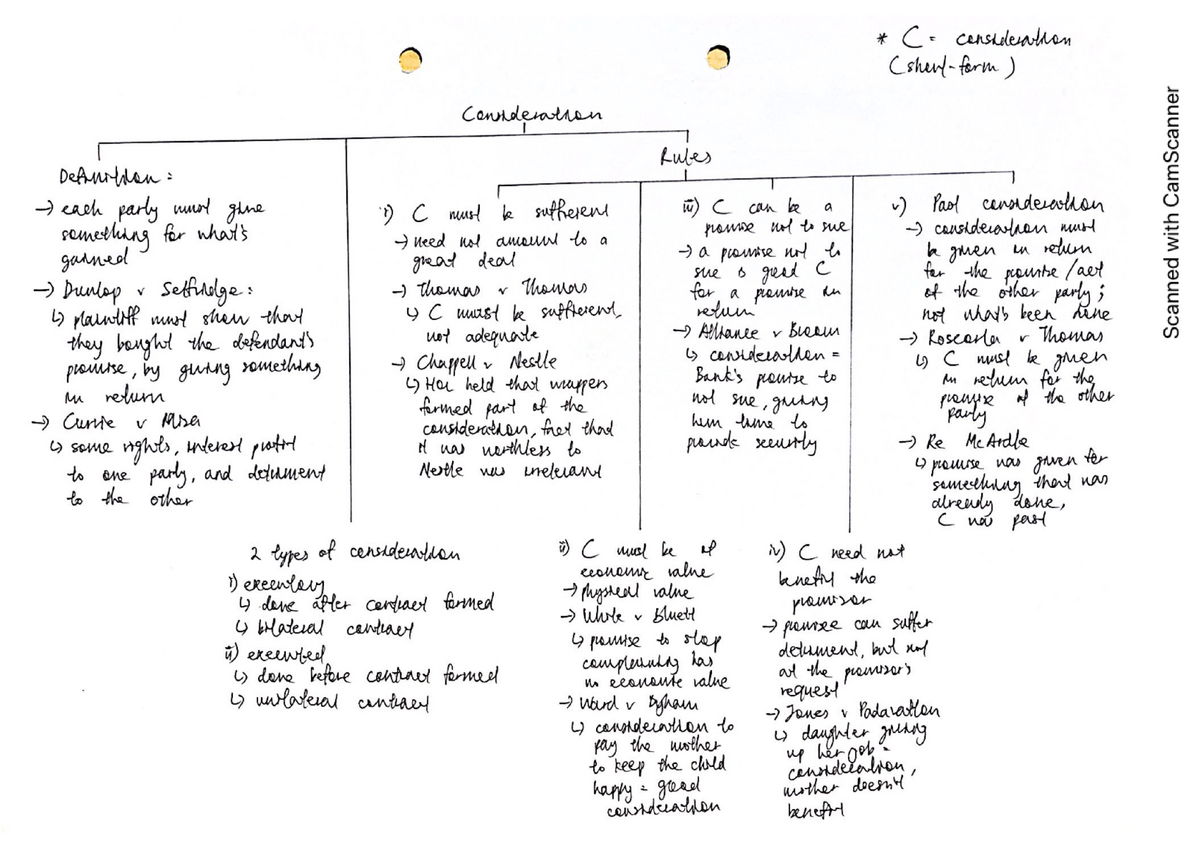 * C = consideration
(short-form)
Consideration
Rules
Definition:
→ each party must give
something for what's
gained
→ Dunlop v Selfridge:
↳ plaintiff must show that
they bought the defendant's
promise, by giving something
in return
→ Currie v Misa
↳ some rights, interest profit
to one party, and detriment
to the other
2 types of consideration
i) executory
↳ done after contract formed
↳ bilateral contract
ii) executed
↳ done before contract formed
↳ unilateral contract
i) C must be sufficient
→ need not amount to a
great deal
→ Thomas v Thomas
↳ C must be sufficient,
not adequate
→ Chappell v Nestle
↳ HoL held that wrappers
formed part of the
consideration, fact that
it was worthless to
Nestle was irrelevant
ii) C must be of
economic value
→ physical value
→ White v Bluett
↳ promise to stop
complaining has
no economic value
→ Ward v Byham
↳ consideration to
pay the mother
to keep the child
happy = good
consideration
iii) C can be a
promise not to sue
→ a promise not to
sue is good C
for a promise in
return
→ Alliance v Broom
↳ consideration =
Bank's promise to
not sue, giving
him time to
provide security
iv) C need not
benefit the
promisor
→ promisee can suffer
detriment, but not
at the promisor's
request
→ Jones v Padavatton
↳ daughter giving
up her job =
consideration,
mother doesn't
benefit
v) Past consideration
→ consideration must
be given in return
for the promise/act
of the other party;
not what's been done
→ Roscorla v Thomas
↳ C must be given
in return for the
promise of the other
party
→ Re McArdle
↳ promise was given for
something that was
already done,
C was past
Scanned with CamScanner